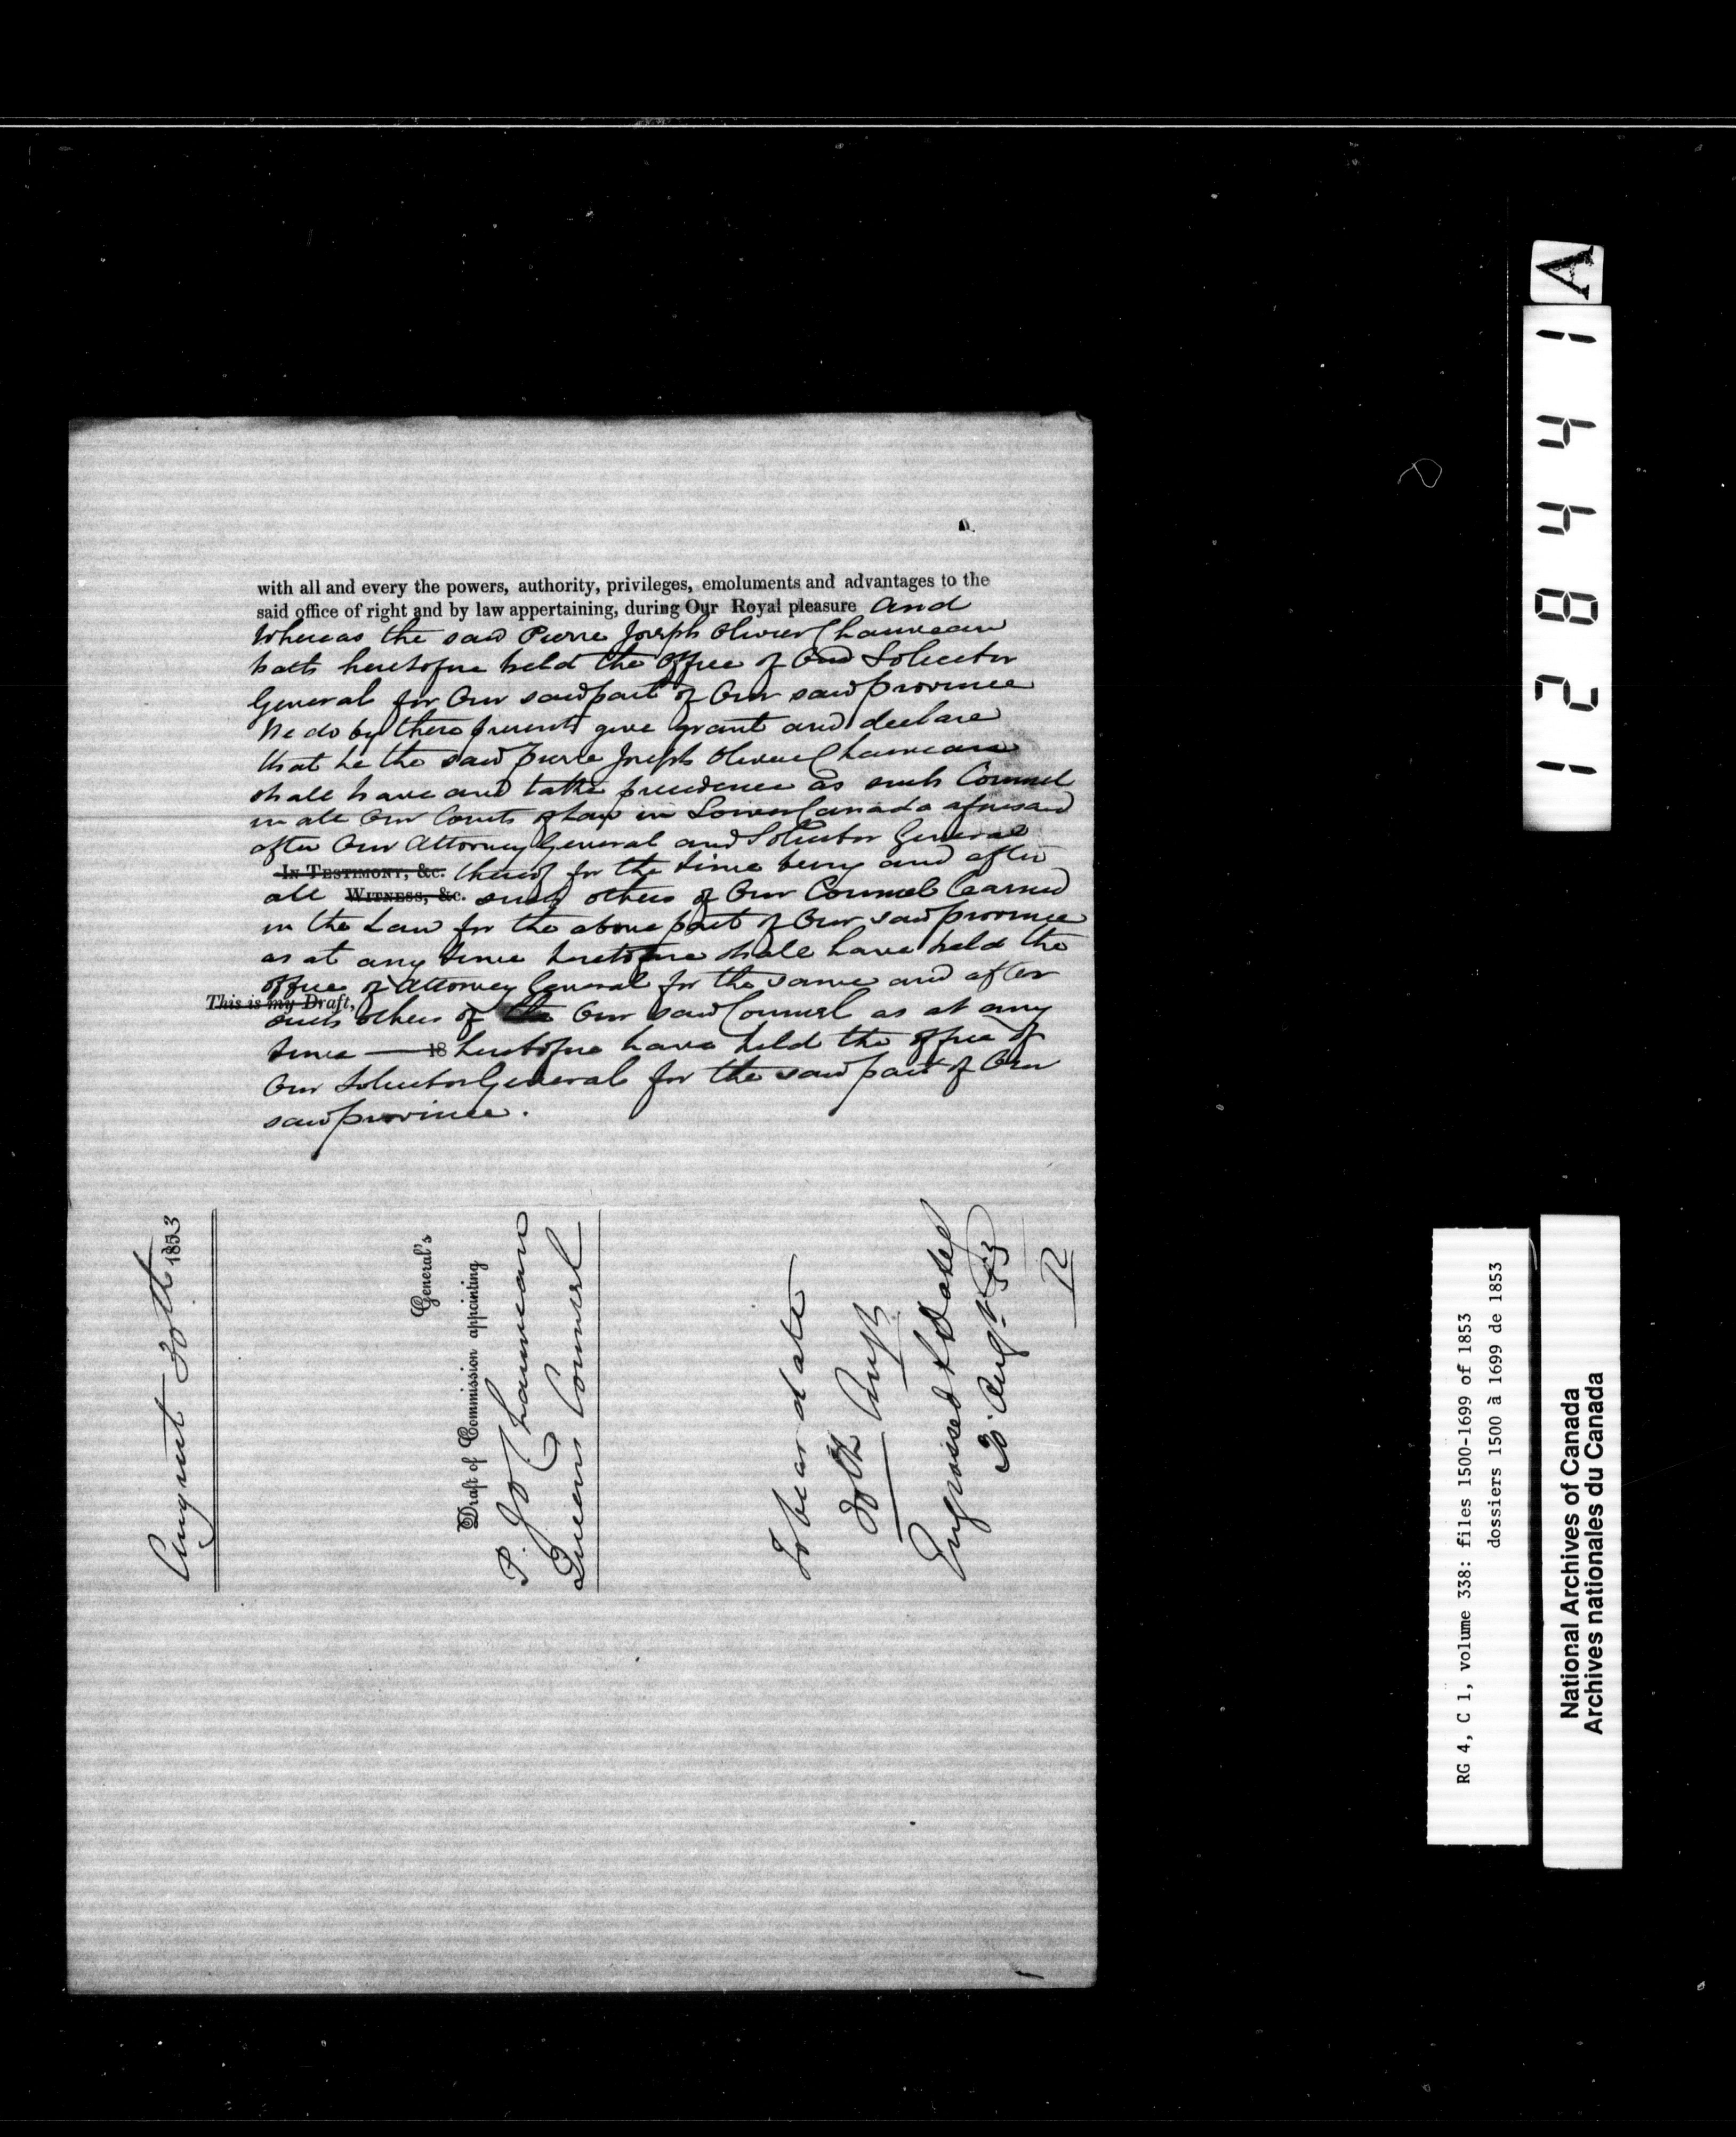 with all and every the powers, authority, privileges, emoluments and advantages to the
said office of right and by law appertaining, during Our Royal pleasure and
Whereas the said Pierre Joseph Olivier Chauveau
hath heretofore held the Office of Our Solicitor
General for Our said part of Our said province
We do by these presents give grant and declare
that he the said Pierre Joseph Olivier Chauveau
shall have and take precedence as such Counsel
in all Our Courts of Law in Lower Canada aforesaid
after Our Attorney General and Solicitor General
In Testimony, &c. thereof for the time being and after
all Witness, &c. such others of Our Counsel learned
in the Law for the above part of Our said province
as at any time heretofore shall have held the
office of Attorney General for the same and after
This is my Draft,
such others of the Our said Counsel as at any
time 18 heretofore have held the office of
Our Solicitor General for the said part of Our
said province.
August 30th 1853
General's
Draft of Commission appointing
P. J. O. Chauveau
Queens Counsel
To bear date
30th Augt
Engrossed & Dated
30 Augt 53
A
128441
RG 4, C 1, volume 338: files 1500-1699 of 1853
dossiers 1500 à 1699 de 1853
National Archives of Canada
Archives nationales du Canada